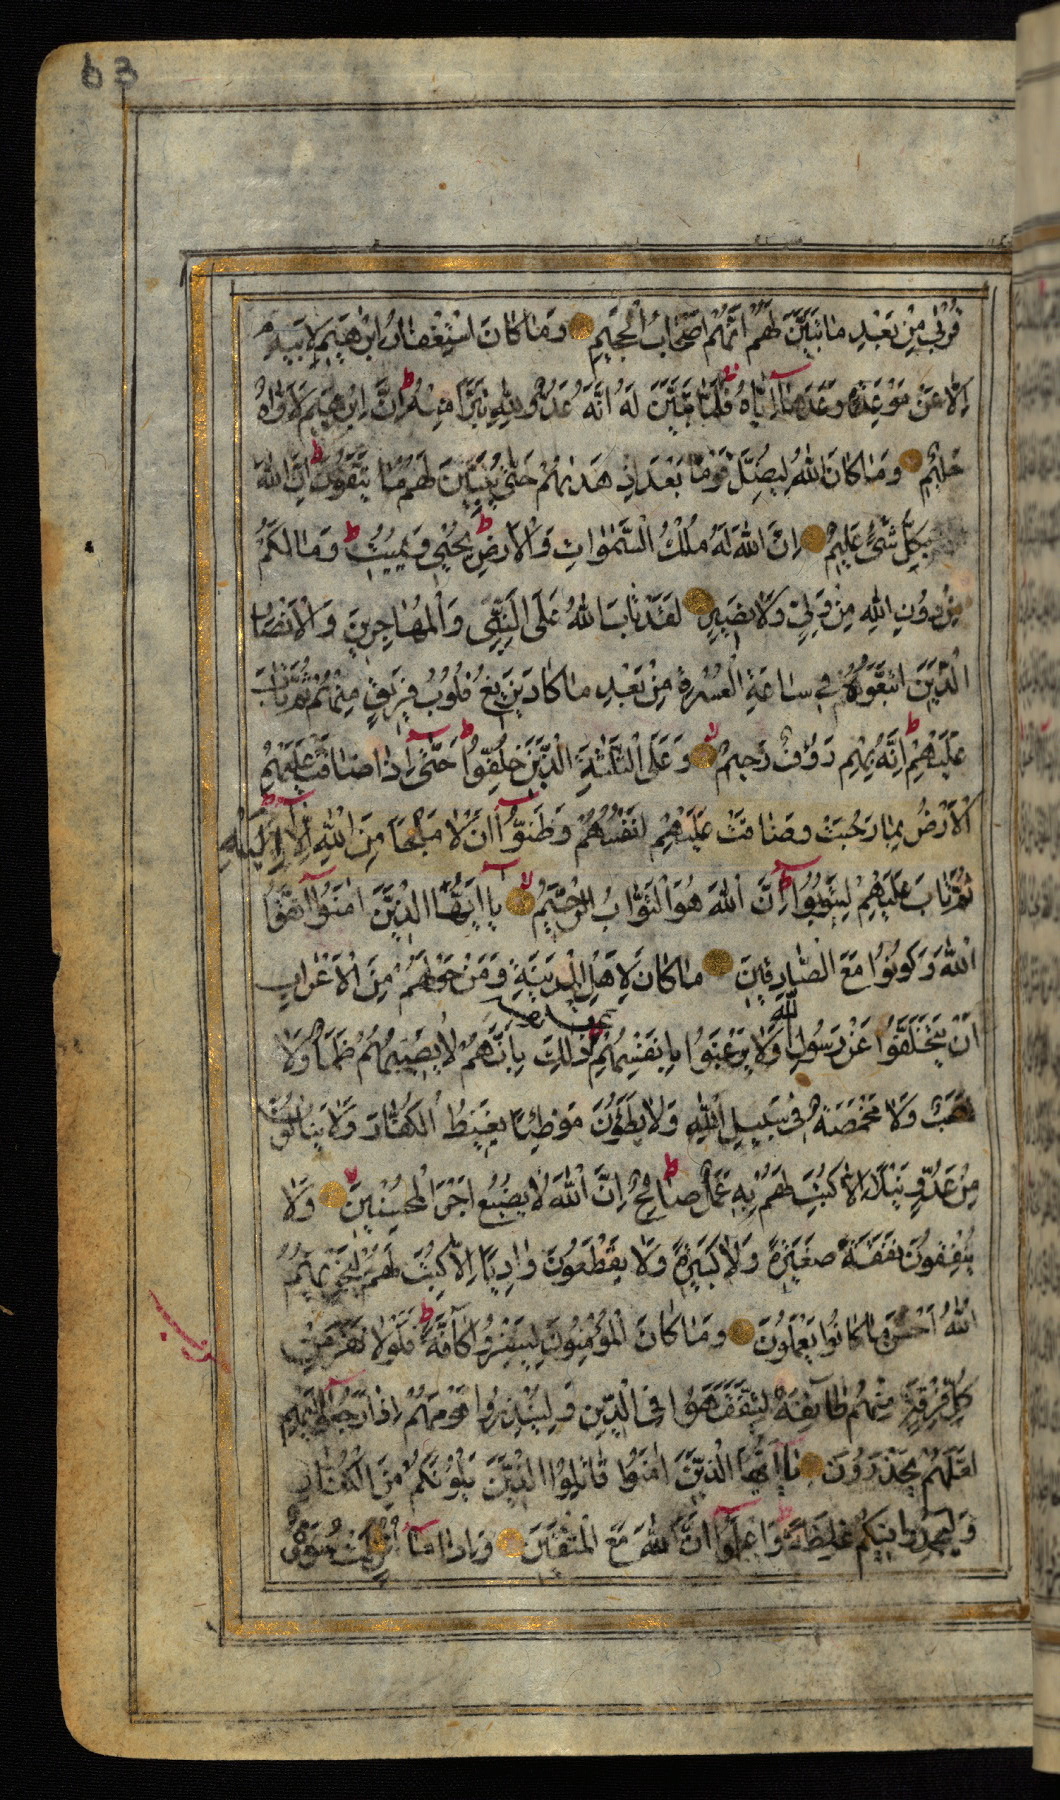 63
قُرْبٰى مِنْ بَعْدِ مَا تَبَيَّنَ لَهُمْ اَنَّهُمْ اَصْحَابُ الْجَحِيمِ وَمَا كَانَ اسْتِغْفَارُ اِبْرٰهِيمَ لِاَبِيهِ
اِلَّا عَنْ مَوْعِدَةٍ وَعَدَهَا اِيَّاهُ فَلَمَّا تَبَيَّنَ لَهُ اَنَّهُ عَدُوٌّ لِلّٰهِ تَبَرَّاَ مِنْهُ اِنَّ اِبْرٰهِيمَ لَاَوَّاهٌ
حَلِيمٌ وَمَا كَانَ اللّٰهُ لِيُضِلَّ قَوْمًا بَعْدَ اِذْ هَدٰيهُمْ حَتّٰى يُبَيِّنَ لَهُمْ مَا يَتَّقُونَ اِنَّ اللّٰهَ
بِكُلِّ شَىْءٍ عَلِيمٌ اِنَّ اللّٰهَ لَهُ مُلْكُ السَّمٰوَاتِ وَالْاَرْضِ يُحْيِى وَيُمِيتُ وَمَا لَكُمْ
مِنْ دُونِ اللّٰهِ مِنْ وَلِىٍّ وَلَا نَصِيرٍ لَقَدْ تَابَ اللّٰهُ عَلَى النَّبِىِّ وَالْمُهَاجِرِينَ وَالْاَنْصَارِ
الَّذِينَ اتَّبَعُوهُ فِى سَاعَةِ الْعُسْرَةِ مِنْ بَعْدِ مَا كَادَ يَزِيغُ قُلُوبُ فَرِيقٍ مِنْهُمْ ثُمَّ تَابَ
عَلَيْهِمْ اِنَّهُ بِهِمْ رَؤُفٌ رَحِيمٌ وَعَلَى الثَّلٰثَةِ الَّذِينَ خُلِّفُوا حَتّٰى اِذَا ضَاقَتْ عَلَيْهِمُ
الْاَرْضُ بِمَا رَحُبَتْ وَضَاقَتْ عَلَيْهِمْ اَنْفُسُهُمْ وَظَنُّوا اَنْ لَا مَلْجَاَ مِنَ اللّٰهِ اِلَّا اِلَيْهِ
ثُمَّ تَابَ عَلَيْهِمْ لِيَتُوبُوا اِنَّ اللّٰهَ هُوَ التَّوَّابُ الرَّحِيمُ يَا اَيُّهَا الَّذِينَ اٰمَنُوا اتَّقُوا
اللّٰهَ وَكُونُوا مَعَ الصَّادِقِينَ مَا كَانَ لِاَهْلِ الْمَدِينَةِ وَمَنْ حَوْلَهُمْ مِنَ الْاَعْرَابِ
اَنْ يَتَخَلَّفُوا عَنْ رَسُولِ اللّٰهِ وَلَا يَرْغَبُوا بِاَنْفُسِهِمْ عَنْ نَفْسِهِ ذٰلِكَ بِاَنَّهُمْ لَا يُصِيبُهُمْ ظَمَاٌ وَلَا
نَصَبٌ وَلَا مَخْمَصَةٌ فِى سَبِيلِ اللّٰهِ وَلَا يَطَؤُنَ مَوْطِئًا يَغِيظُ الْكُفَّارَ وَلَا يَنَالُونَ
مِنْ عَدُوٍّ نَيْلًا اِلَّا كُتِبَ لَهُمْ بِهِ عَمَلٌ صَالِحٌ اِنَّ اللّٰهَ لَا يُضِيعُ اَجْرَ الْمُحْسِنِينَ وَلَا
يُنْفِقُونَ نَفَقَةً صَغِيرَةً وَلَا كَبِيرَةً وَلَا يَقْطَعُونَ وَادِيًا اِلَّا كُتِبَ لَهُمْ لِيَجْزِيَهُمُ
اللّٰهُ اَحْسَنَ مَا كَانُوا يَعْمَلُونَ وَمَا كَانَ الْمُؤْمِنُونَ لِيَنْفِرُوا كَافَّةً فَلَوْلَا نَفَرَ مِنْ
كُلِّ فِرْقَةٍ مِنْهُمْ طَائِفَةٌ لِيَتَفَقَّهُوا فِى الدِّينِ وَلِيُنْذِرُوا قَوْمَهُمْ اِذَا رَجَعُوا اِلَيْهِمْ
لَعَلَّهُمْ يَحْذَرُونَ يَا اَيُّهَا الَّذِينَ اٰمَنُوا قَاتِلُوا الَّذِينَ يَلُونَكُمْ مِنَ الْكُفَّارِ
وَلْيَجِدُوا فِيكُمْ غِلْظَةً وَاعْلَمُوا اَنَّ اللّٰهَ مَعَ الْمُتَّقِينَ وَاِذَا مَا اُنْزِلَتْ سُورَةٌ